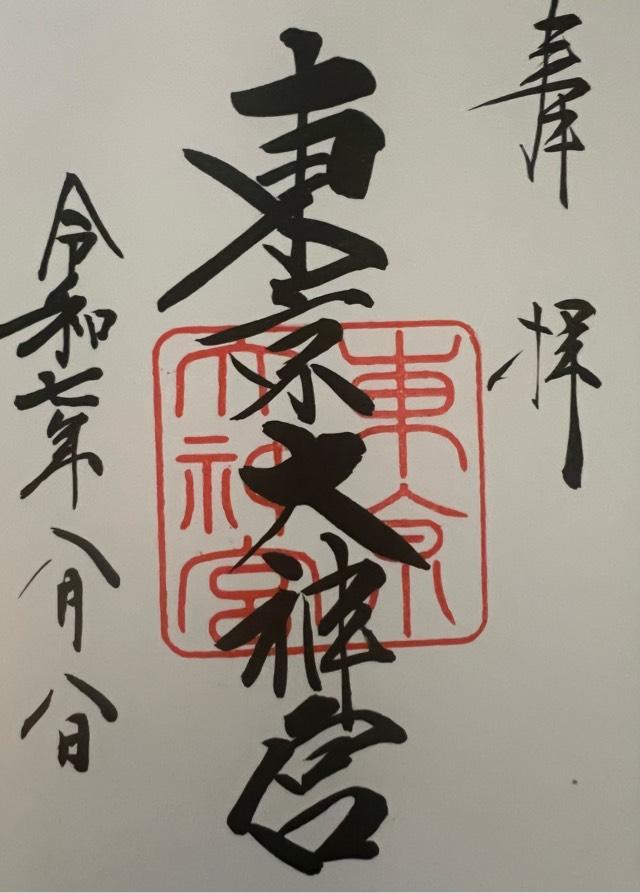 奉拝
東京大神宮
東京
大神宮
令和七年八月八日